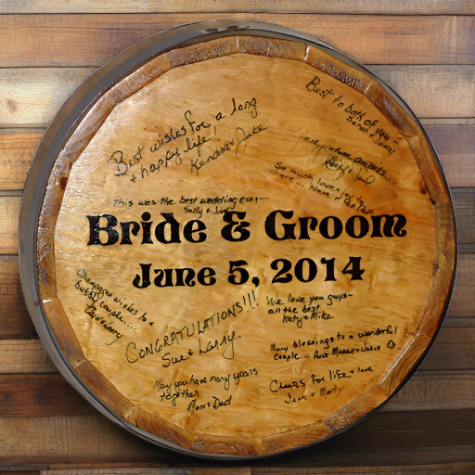 Best wishes for a long
& happy life!
Kendra & Jake
Best to both of you—
Sarah & James
So much love to
share... Nana & The Pap
This was the best wedding ever—
Sally & Jimmy
Bride & Groom
June 5, 2014
Champagne wishes to a
bubbly couple...
CONGRATULATIONS!!!
Sue & Larry
We love you guys-
all the best
Katy & Mike
Many blessings to a wonderful
couple... Aunt
May you have many years
together
Mom & Dad
Cheers for life & love
Jean & Marty